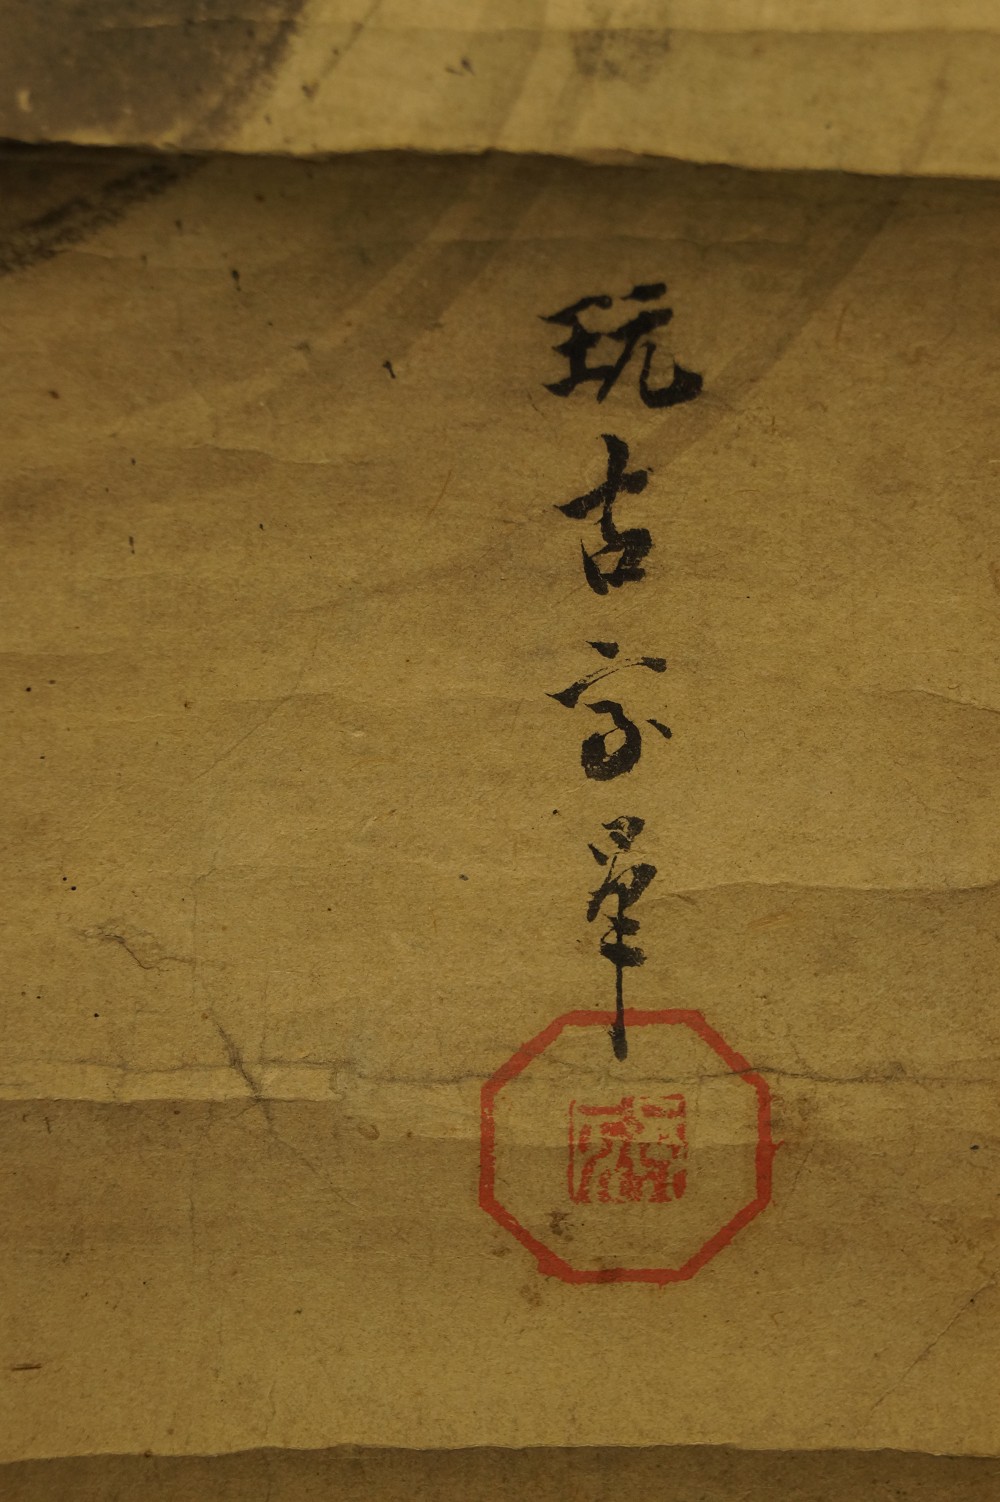 玩古斎筆